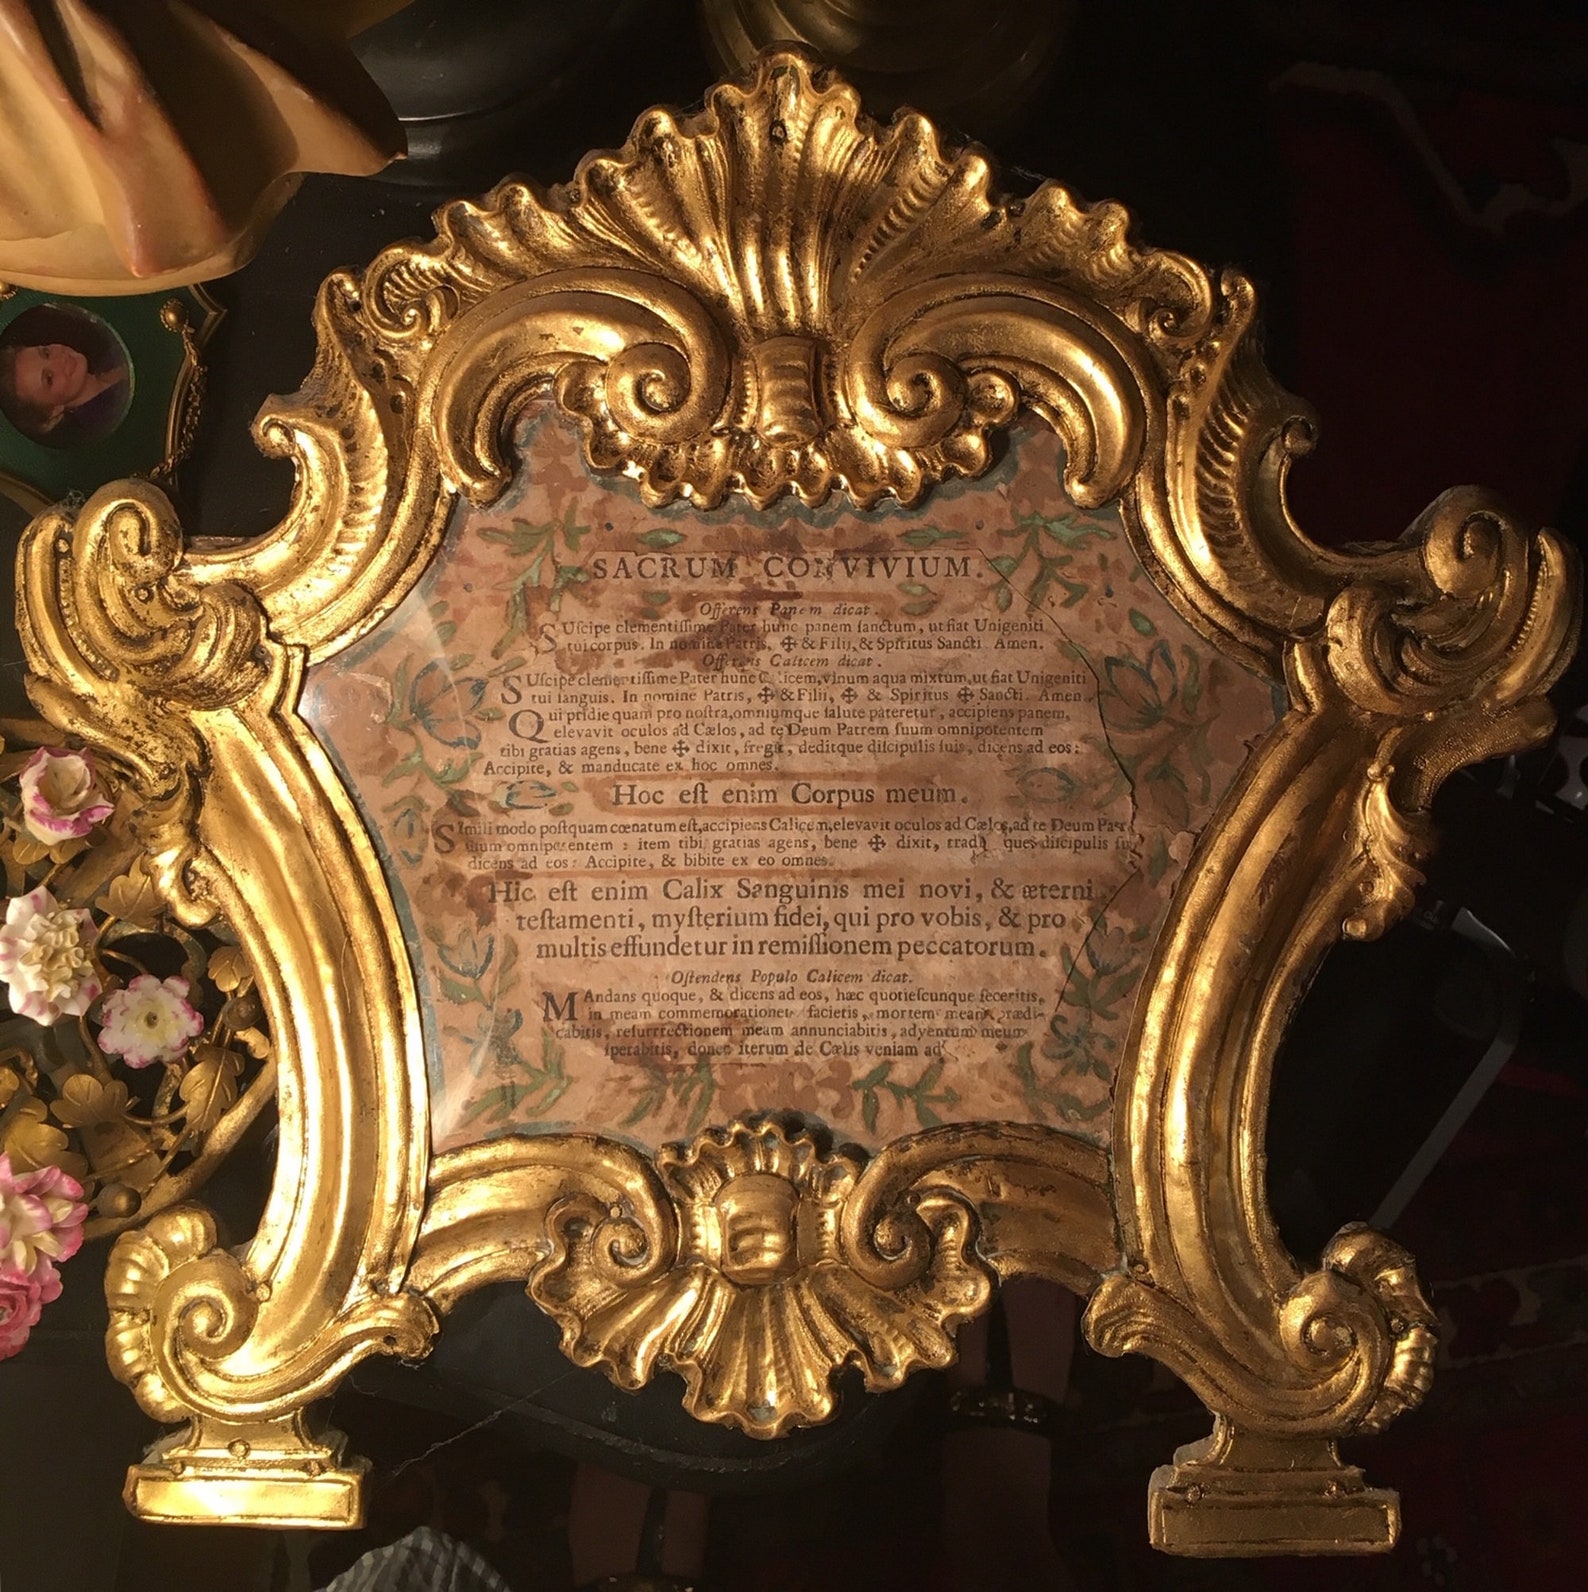 SACRUM CONVIVIUM.
Offerens Panem dicat.
SUſcipe clementiſſime Pater hunc panem ſanctum, ut fiat Unigeniti
tui corpus. In nomine Patris, ✠ & Filii, & Spiritus Sancti. Amen.
Offerens Calicem dicat.
SUſcipe clementiſſime Pater hunc Calicem, vinum aqua mixtum, ut fiat Unigeniti
tui ſanguis. In nomine Patris, ✠ & Filii, ✠ & Spiritus ✠ Sancti. Amen.
Qui pridie quam pro noſtra, omniumque ſalute pateretur, accipiens panem,
elevavit oculos ad Cælos, ad te Deum Patrem ſuum omnipotentem
tibi gratias agens, bene ✠ dixit, fregit, deditque diſcipulis ſuis, dicens ad eos:
Accipite, & manducate ex hoc omnes.
Hoc eſt enim Corpus meum.
SImili modo poſtquam cœnatum eſt, accipiens Calicem, elevavit oculos ad Cælos, ad te Deum
ſuum omnipotentem: item tibi gratias agens, bene ✠ dixit, ques diſcipulis
dicens ad eos: Accipite, & bibite ex eo omnes.
Hic eſt enim Calix Sanguinis mei novi, & æterni
teſtamenti, myſterium fidei, qui pro vobis, & pro
multis effundetur in remiſſionem peccatorum.
Oſtendens Populo Calicem dicat.
MAndans quoque, & dicens ad eos, hæc quotieſcunque feceritis,
in meam commemorationem facietis, mortem meam prædi-
cabitis, reſurrectionem meam annunciabitis, adventum meum
ſperabitis, donec iterum de Cælis veniam ad